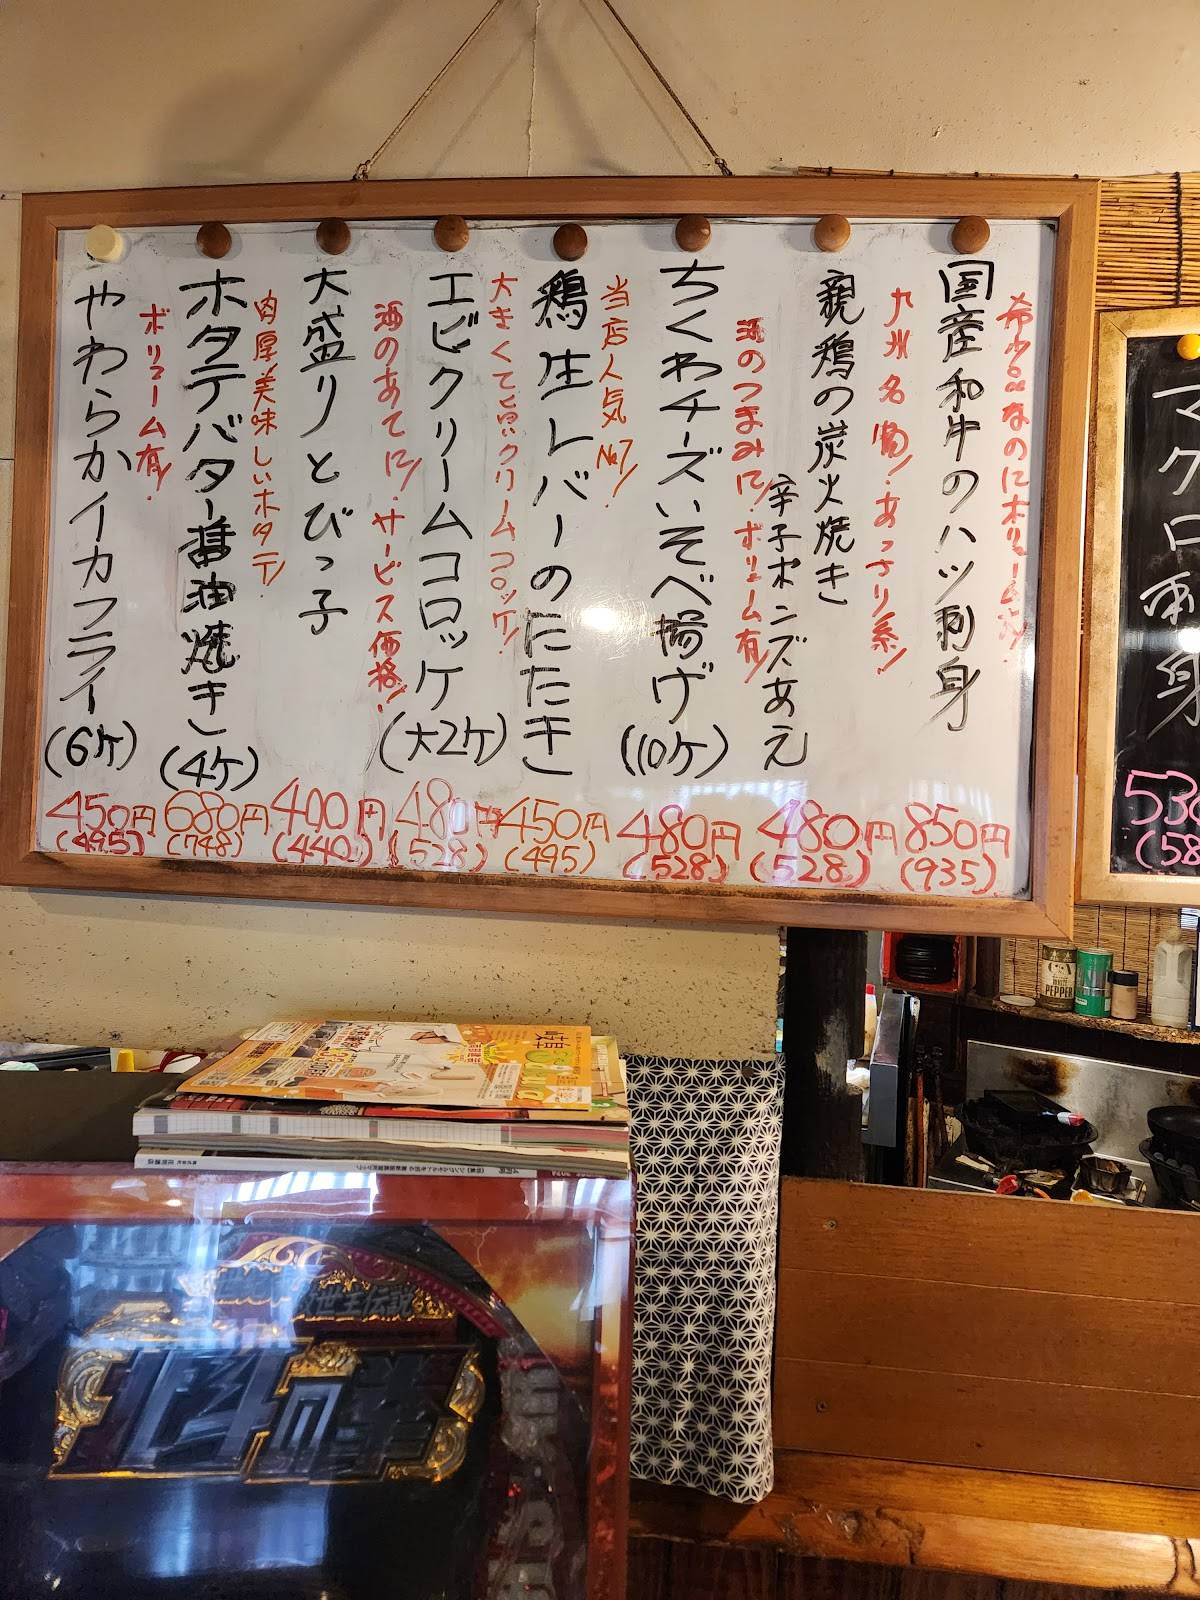 希少品なのにボリューム有!
国産和牛のハツ刺身
850円
(935)
九州名物!あっさり系!
親鶏の炭火焼き
辛子ポンズあえ
480円
(528)
酒のつまみに!ボリューム有!
ちくわチーズいそべ揚げ
(10ケ)
480円
(528)
当店人気№1!
鶏生レバーのたたき
450円
(495)
大きくて濃いクリームコロッケ!
エビクリームコロッケ
(大2ケ)
480円
(528)
酒のあてに!サービス価格!
大盛りとびっ子
400円
(440)
肉厚美味しいホタテ!
ホタテバター醤油焼き
(4ケ)
680円
(748)
ボリューム有!
やわらかイカフライ
(6ケ)
450円
(495)
マグロ刺身
530
(58
WHITE
PEPPER
救世主伝説
北斗の拳